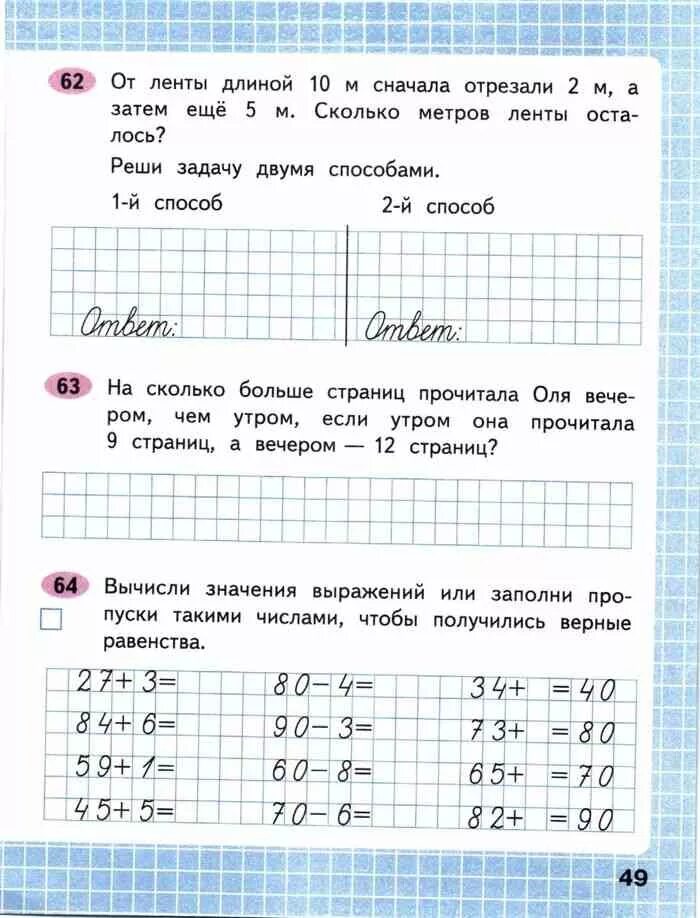 62 От ленты длиной 10 м сначала отрезали 2 м, а
затем ещё 5 м. Сколько метров ленты оста-
лось?
Реши задачу двумя способами.
1-й способ 2-й способ
Ответ: Ответ:
63 На сколько больше страниц прочитала Оля вече-
ром, чем утром, если утром она прочитала
9 страниц, а вечером — 12 страниц?
64 Вычисли значения выражений или заполни про-
пуски такими числами, чтобы получились верные
равенства.
27+3= 80-4= 34+ =40
84+6= 90-3= 73+ =80
59+1= 60-8= 65+ =70
45+5= 70-6= 82+ =90
49